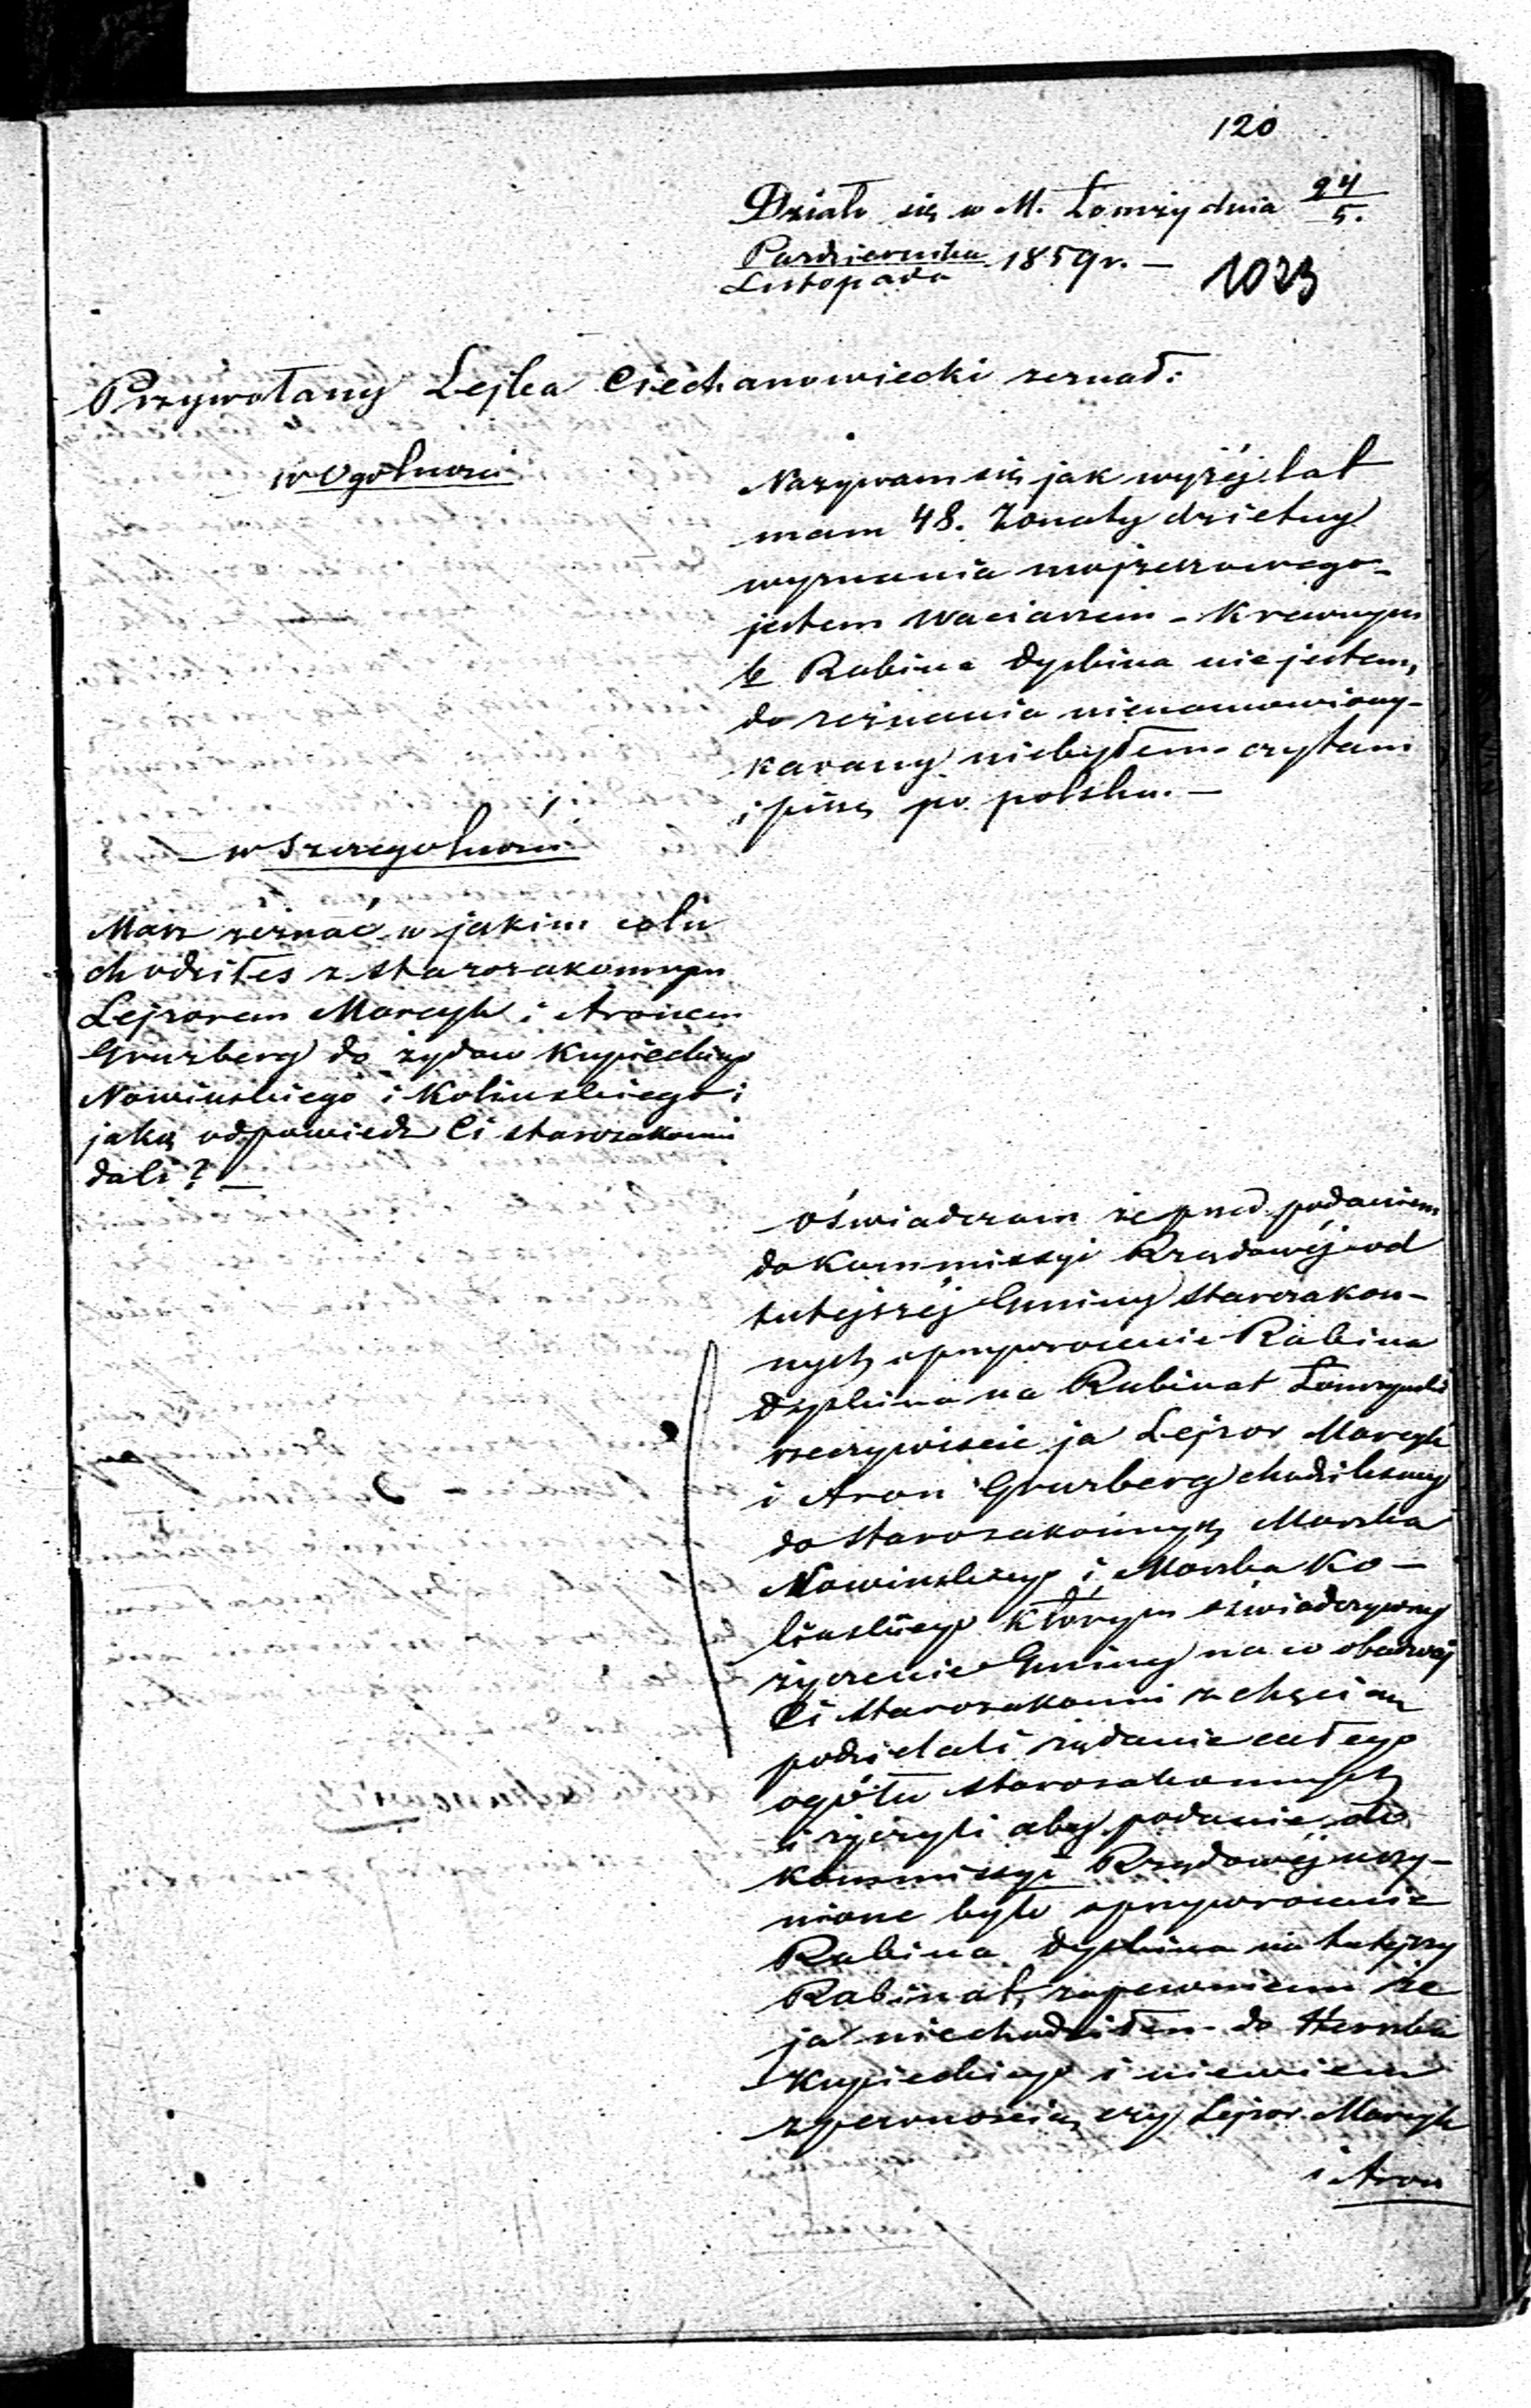 120
Działo się w M. Łomży dnia 24/5.
Października/Listopada 1859 r. —
1023
Przywołany Lejba Ciechanowiecki zeznał:
w Ogólnosci
Nazywam się jak wyżéj lat
mam 48. żonaty dzietny
wyznania mojżeszowego –
jestem Waciarzem – Krewnym
Rabina Dyskina nie jestem,
do zeznania nienamowiony –
karany niebyłem – czytam
i piszę po polsku. —
w Szczegolnosci
Masz zeznać w jakim celu
chodziłes z starozakonnym
Lejzorem Marcyk i Aronem
Gruzberg do żydow Kupieckiego
Nowinskiego i Kolinskiego i
jaką odpowiedz Ci starozakonni
dali? —
oświadczam że przed podaniem
do Kommissyi Rządowéj od
tutejszéj Gminy starozakon-
nych o przywrocenie Rabina
Dyskina na Rabinat Łomzynski
rzeczywiscie ja Lejzor Marcyk
i Aron Gruzberg chodzilismy
do starozakonnych Moszka
Nowinskiego i Moszka Ko-
linskiego którym oswiadczylismy
życzenie Gminy na co obadwaj
Ci starozakonni z chęcią
podzielali żądanie całego
ogółu starozakonnych
i życzyli aby podanie do
Kommissyi Rządowéj uczy-
nione było o przywrocenie
Rabina Dyskina na tutejszy
Rabinat, zapewniam że
ja niechodziłem do Herszka
Kupieckiego i niewiem
z pewnoscią czy Lejzor Marcyk
i Aron